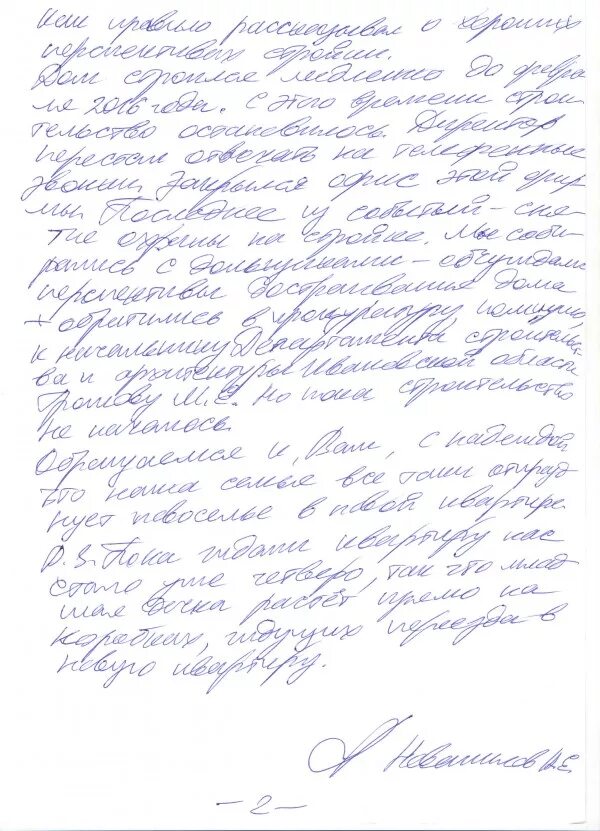 Как правило рассказывал о хороших
перспективах стройки.
Дом строился медленно до февра
ля 2016 года. С этого времени строи
тельство остановилось. Директор
перестал отвечать на телефонные
звонки. Закрылся офис этой фир
мы. Последнее из событий – сня
тие охраны на стройке. Мы соби
рались с дольщиками – обсуждали
перспективы достраивания дома
– обратились в прокуратуру,
к начальнику Департамента строительс
тва и архитектуры Ивановской области
М.Е. Но пока строительство
не началось.
Обращаемся к Вам, с надеждой
что наша семья все таки отпразд
нует новоселье в новой квартире.
P.S. Пока ждали квартиру нас
стало уже четверо, так что млад
шая дочка растёт прямо на
коробках, ждущих переезда в
новую квартиру.
– 2 –